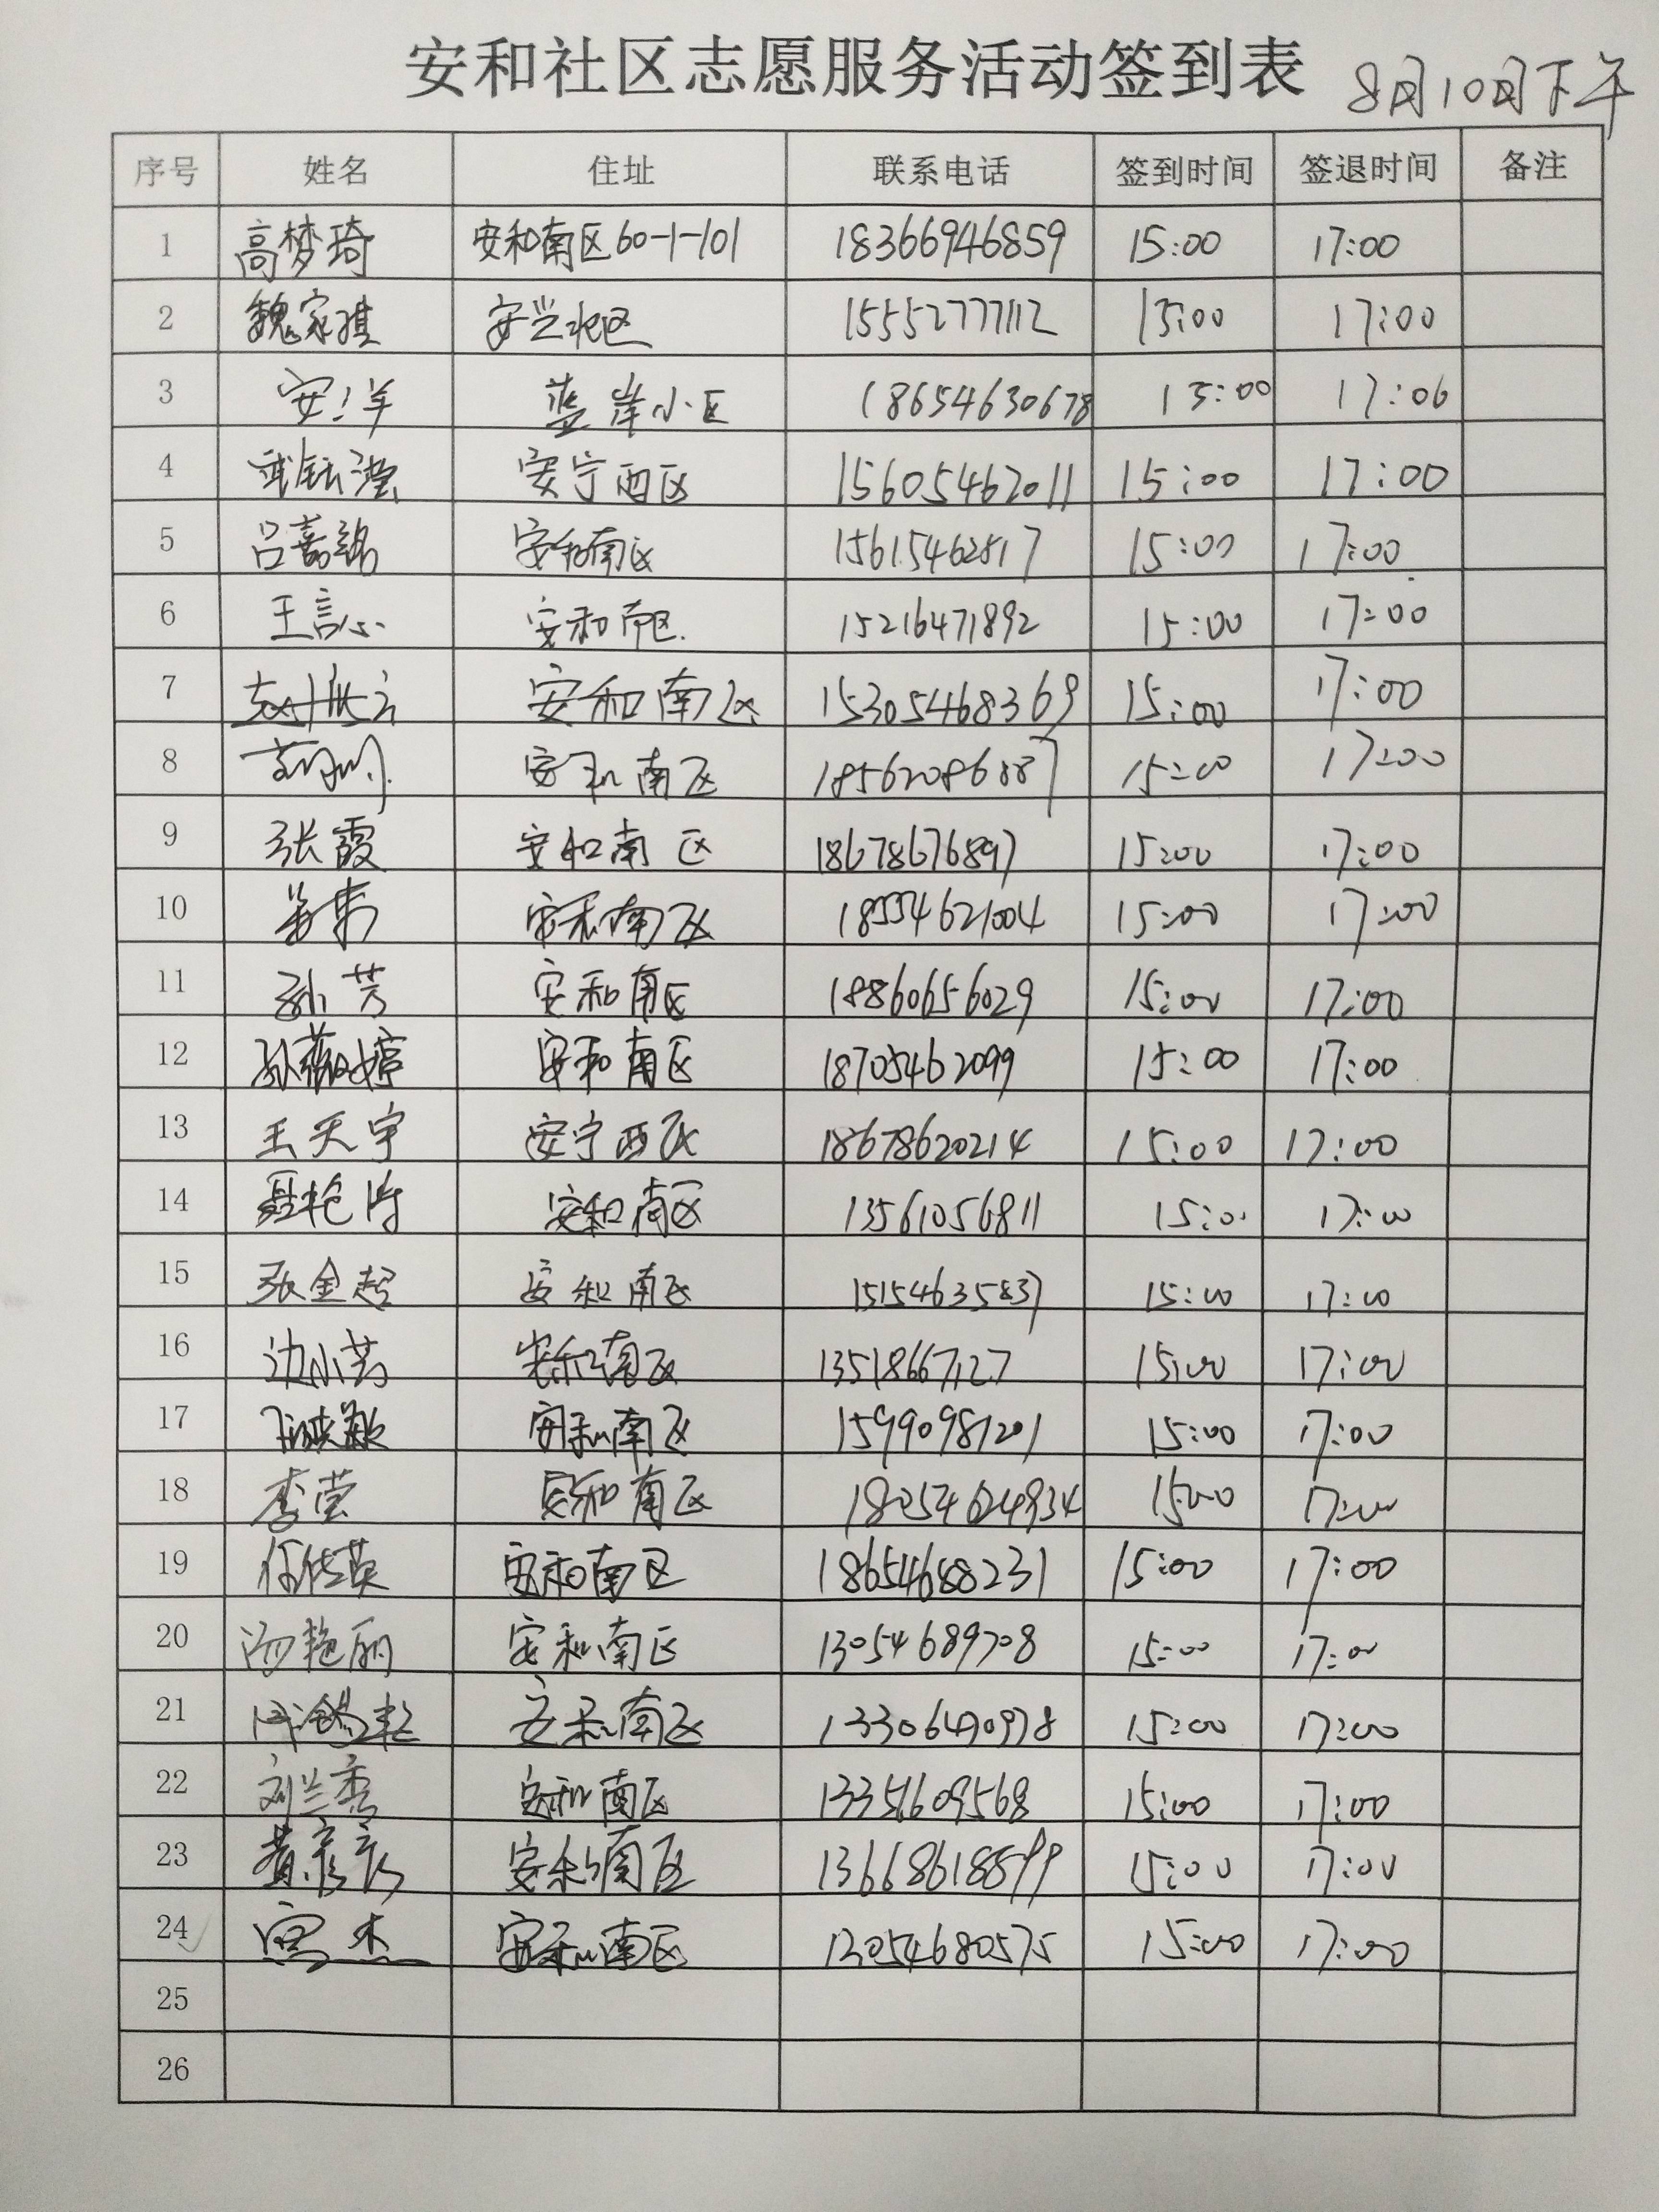 安和社区志愿服务活动签到表 8月10日下午
序号 姓名 住址 联系电话 签到时间 签退时间 备注
1 高梦琦 安和南区60-1-101 18366946859 15:00 17:00
2 魏家琪 安兴北区 15552777112 15:00 17:00
3 安洋 蓝岸小区 18654630678 15:00 17:00
4 安宁西区 15605462011 15:00 17:00
5 吕嘉锦 安和南区 15615462817 15:00 17:00
6 王言心 安和南区 15216471892 15:00 17:00
7 安和南区 15305468369 15:00 17:00
8 安和南区 15:00 17:00
9 张霞 安和南区 18678676897 15:00 17:00
10 安和南区 18554621004 15:00 17:00
11 孙芳 安和南区 18860656029 15:00 17:00
12 孙薇婷 安和南区 18705462099 15:00 17:00
13 王天宇 安宁西区 18678620214 15:00 17:00
14 聂艳涛 安和南区 13561056811 15:00 17:00
15 张金超 安和南区 15154635837 15:00 17:00
16 边小芳 安和南区 13518667127 15:00 17:00
17 安和南区 15990981201 15:00 17:00
18 李莹 安和南区 18054624934 15:00 17:00
19 何佳英 安和南区 18654688231 15:00 17:00
20 汤艳丽 安和南区 13054689708 15:00 17:00
21 安和南区 13306490978 15:00 17:00
22 刘兰香 安和南区 13351609568 15:00 17:00
23 黄彦彦 安和南区 13668618899 15:00 17:00
24 安和南区 13054680575 15:00 17:00
25
26